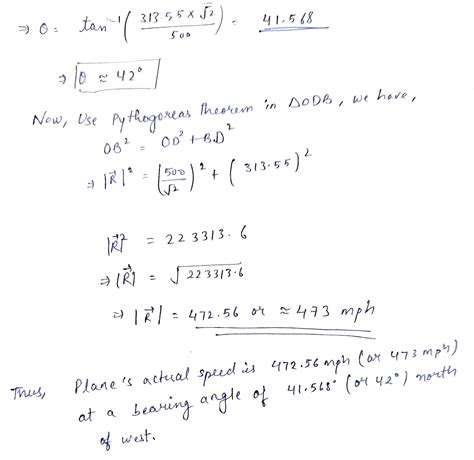 ⇒ θ = tan⁻¹ ( 313.55 × √2 / 500 ) = 41.568
⇒ θ ≈ 42°
Now, Use Pythogoreas theorem in ΔODB, we have,
OB² = OD² + BD²
⇒ |R⃗|² = (500/√2)² + (313.55)²
|R⃗|² = 223313.6
⇒ |R⃗| = √223313.6
⇒ |R⃗| = 472.56 or ≈ 473 mph
Thus, Plane's actual speed is 472.56 mph (or 473 mph)
at a bearing angle of 41.568° (or 42°) north
of west.